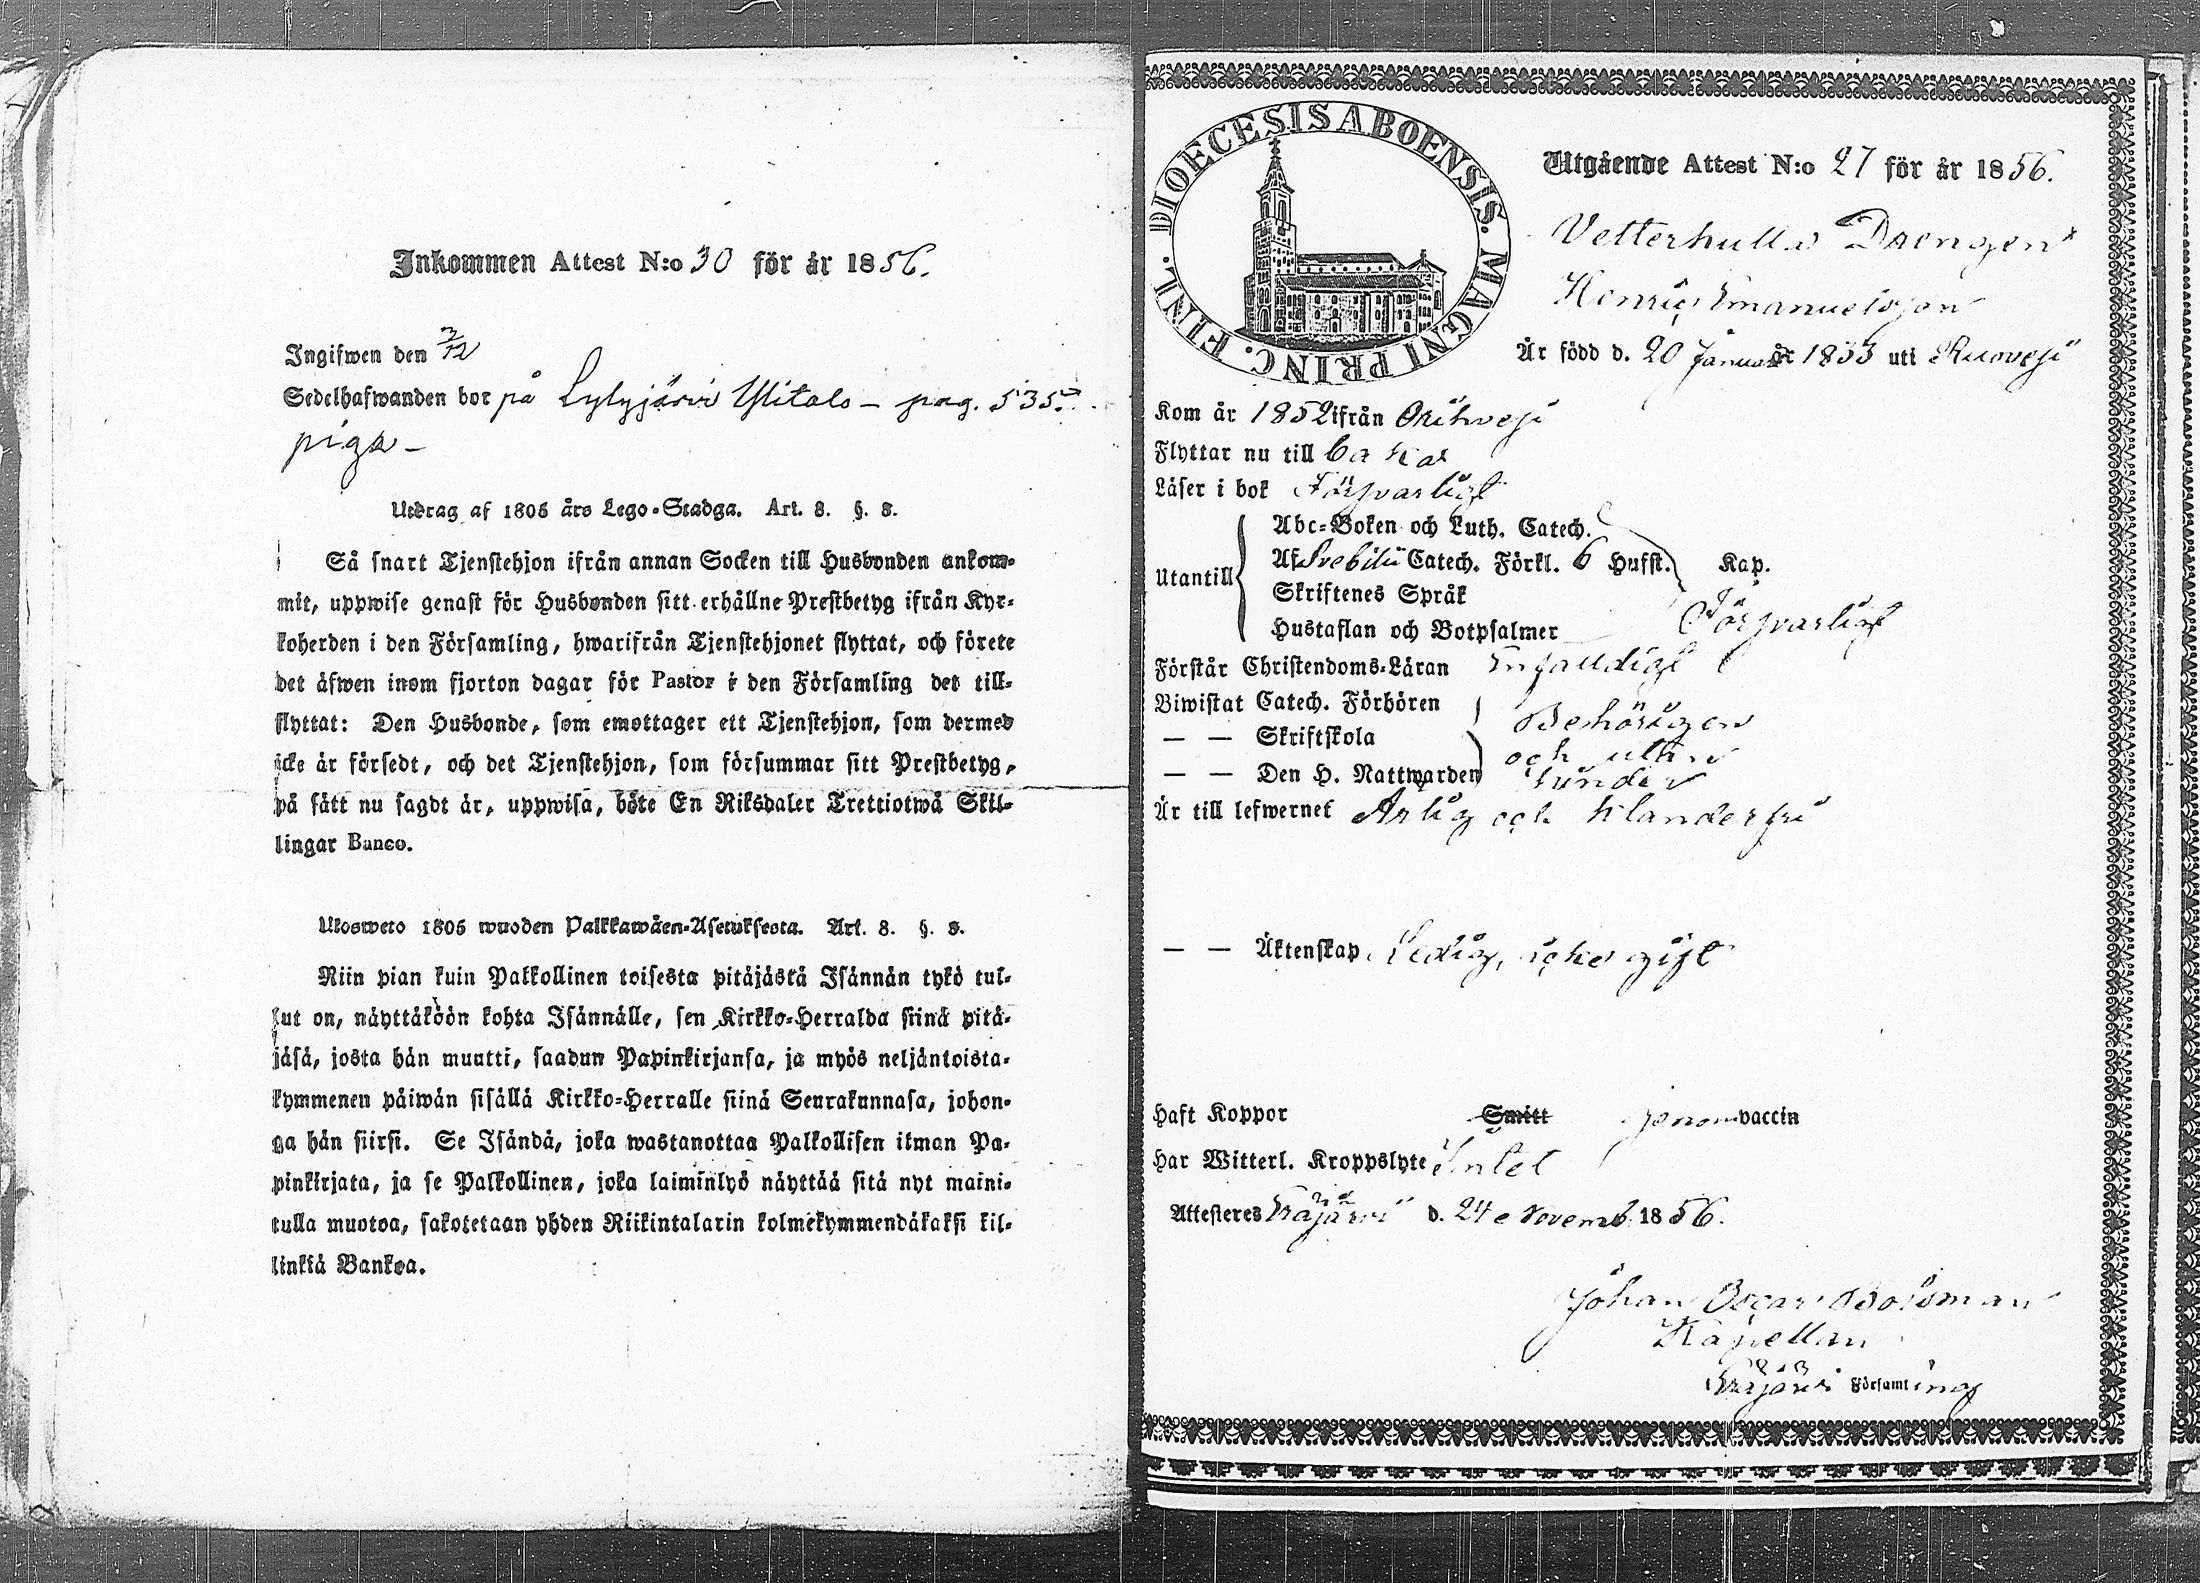 Inkommen Attest N:o 30 för år 1856.
Ingifwen den 2/12
Sedelhafwanden bor på Lylyjärvi Ylitalo – pag. 535.
piga –
Utdrag af 1805 års Lego-Stadga. Art. 8. §. 8.
Så snart Tjenstehjon ifrån annan Socken till Husbonden ankom-
mit, uppwise genast för Husbonden sitt erhållne Prestbetyg ifrån Kyr-
koherden i den Församling, hwarifrån Tjenstehjonet flyttat, och förete
det äfwen inom fjorton dagar för Pastor i den Församling det till-
flyttat: Den Husbonde, som emottager ett Tjenstehjon, som dermed
icke är försedt, och det Tjenstehjon, som försummar sitt Prestbetyg,
på sätt nu sagdt är, uppwisa, böte En Riksdaler Trettiotwå Skil-
lingar Banco.
Ulosweto 1805 wuoden Palkkawäen-Asetuksesta. Art. 8. §. 8.
Niin pian kuin Palkollinen toisesta pitäjästä Isännän tykö tul-
lut on, näyttäköön kohta Isännälle, sen Kirkko-Herralda siinä pitä-
jäsä, josta hän muutti, saadun Papinkirjansa, ja myös neljäntoista-
kymmenen päiwän sisällä Kirkko-Herralle siinä Seurakunnasa, johon-
ga hän siirsi. Se Isändä, joka wastanottaa Palkollisen ilman Pa-
pinkirjata, ja se Palkollinen, joka laiminlyö näyttää sitä nyt maini-
tulla muotoa, sakotetaan yhden Riikintalarin kolmekymmendäkaksi kil-
linkiä Bankoa.
DIOECESIS ABOENSIS. MAGNI PRINC. FINL.
Utgående Attest N:o 27 för år 1856.
Vetterkulla Drengen
Henric Emanuelsson
Är född d. 20 Januari 1833 uti Ruovesi
Kom år 1852 ifrån Orihvesi
Flyttar nu till
Läser i bok Försvarligt
Abc-Boken och Luth. Catech.
Utantill Af Svebilii Catech. Förkl. 6 Hufst. Kap.
Skriftenes Språk
Hustaflan och Botpsalmer Försvarligt
Förstår Christendoms-Läran Enfaldigt
Biwistat Catech. Förhören Behörigen
— — Skriftskola och utan
— — Den H. Nattwarden hinder
Är till lefwernet Ärlig och klanderfri
— — Äktenskap Ledig, icke gift
Haft Koppor Smitt genom vaccin
Har Witterl. Kroppslyte Intet
Attesteras Eräjärvi d. 24 Novemb. 1856.
Johan Oscar Boisman
Kapellan
Eräjärvi Församling